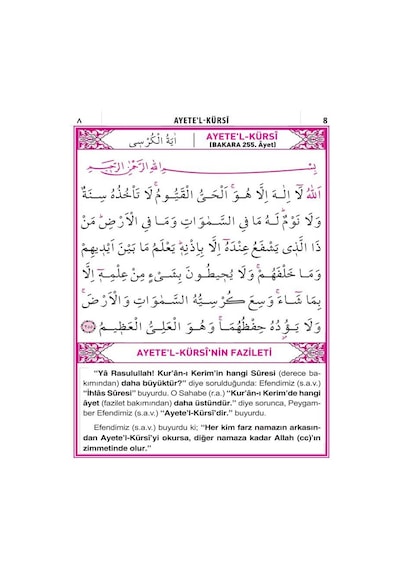 ٨ AYETE'L-KÜRSİ 8
اٰيَةُ الْكُرْسِى AYETE'L-KÜRSİ
(BAKARA 255. Âyet)
بِسْمِ اللّٰهِ الرَّحْمٰنِ الرَّحِيمِ
اَللّٰهُ لَٓا اِلٰهَ اِلَّا هُوَۚ اَلْحَىُّ الْقَيُّومُۚ لَا تَأْخُذُهُ سِنَةٌ
وَلَا نَوْمٌۜ لَهُ مَا فِى السَّمٰوَاتِ وَمَا فِى الْاَرْضِۜ مَنْ
ذَا الَّذٖى يَشْفَعُ عِنْدَهُٓ اِلَّا بِاِذْنِهٖۜ يَعْلَمُ مَا بَيْنَ اَيْدٖيهِمْ
وَمَا خَلْفَهُمْۚ وَلَا يُحٖيطُونَ بِشَىْءٍ مِنْ عِلْمِهٖٓ اِلَّا
بِمَا شَٓاءَۚ وَسِعَ كُرْسِيُّهُ السَّمٰوَاتِ وَالْاَرْضَۚ
وَلَا يَؤُدُهُ حِفْظُهُمَاۚ وَهُوَ الْعَلِىُّ الْعَظٖيمُ ﴿٢٥٥﴾
AYETE'L-KÜRSİ'NİN FAZİLETİ
"Yâ Rasulullah! Kur'ân-ı Kerim'in hangi Sûresi (derece ba-
kımından) daha büyüktür?" diye sorulduğunda: Efendimiz (s.a.v.)
"İhlâs Sûresi" buyurdu. O Sahabe (r.a.) "Kur'ân-ı Kerim'de hangi
âyet (fazilet bakımından) daha üstündür." diye sorunca, Peygam-
ber Efendimiz (s.a.v.) "Ayete'l-Kürsi'dir." buyurdu.
Efendimiz (s.a.v.) buyurdu ki; "Her kim farz namazın arkasın-
dan Ayete'l-Kürsi'yi okursa, diğer namaza kadar Allah (cc)'ın
zimmetinde olur."